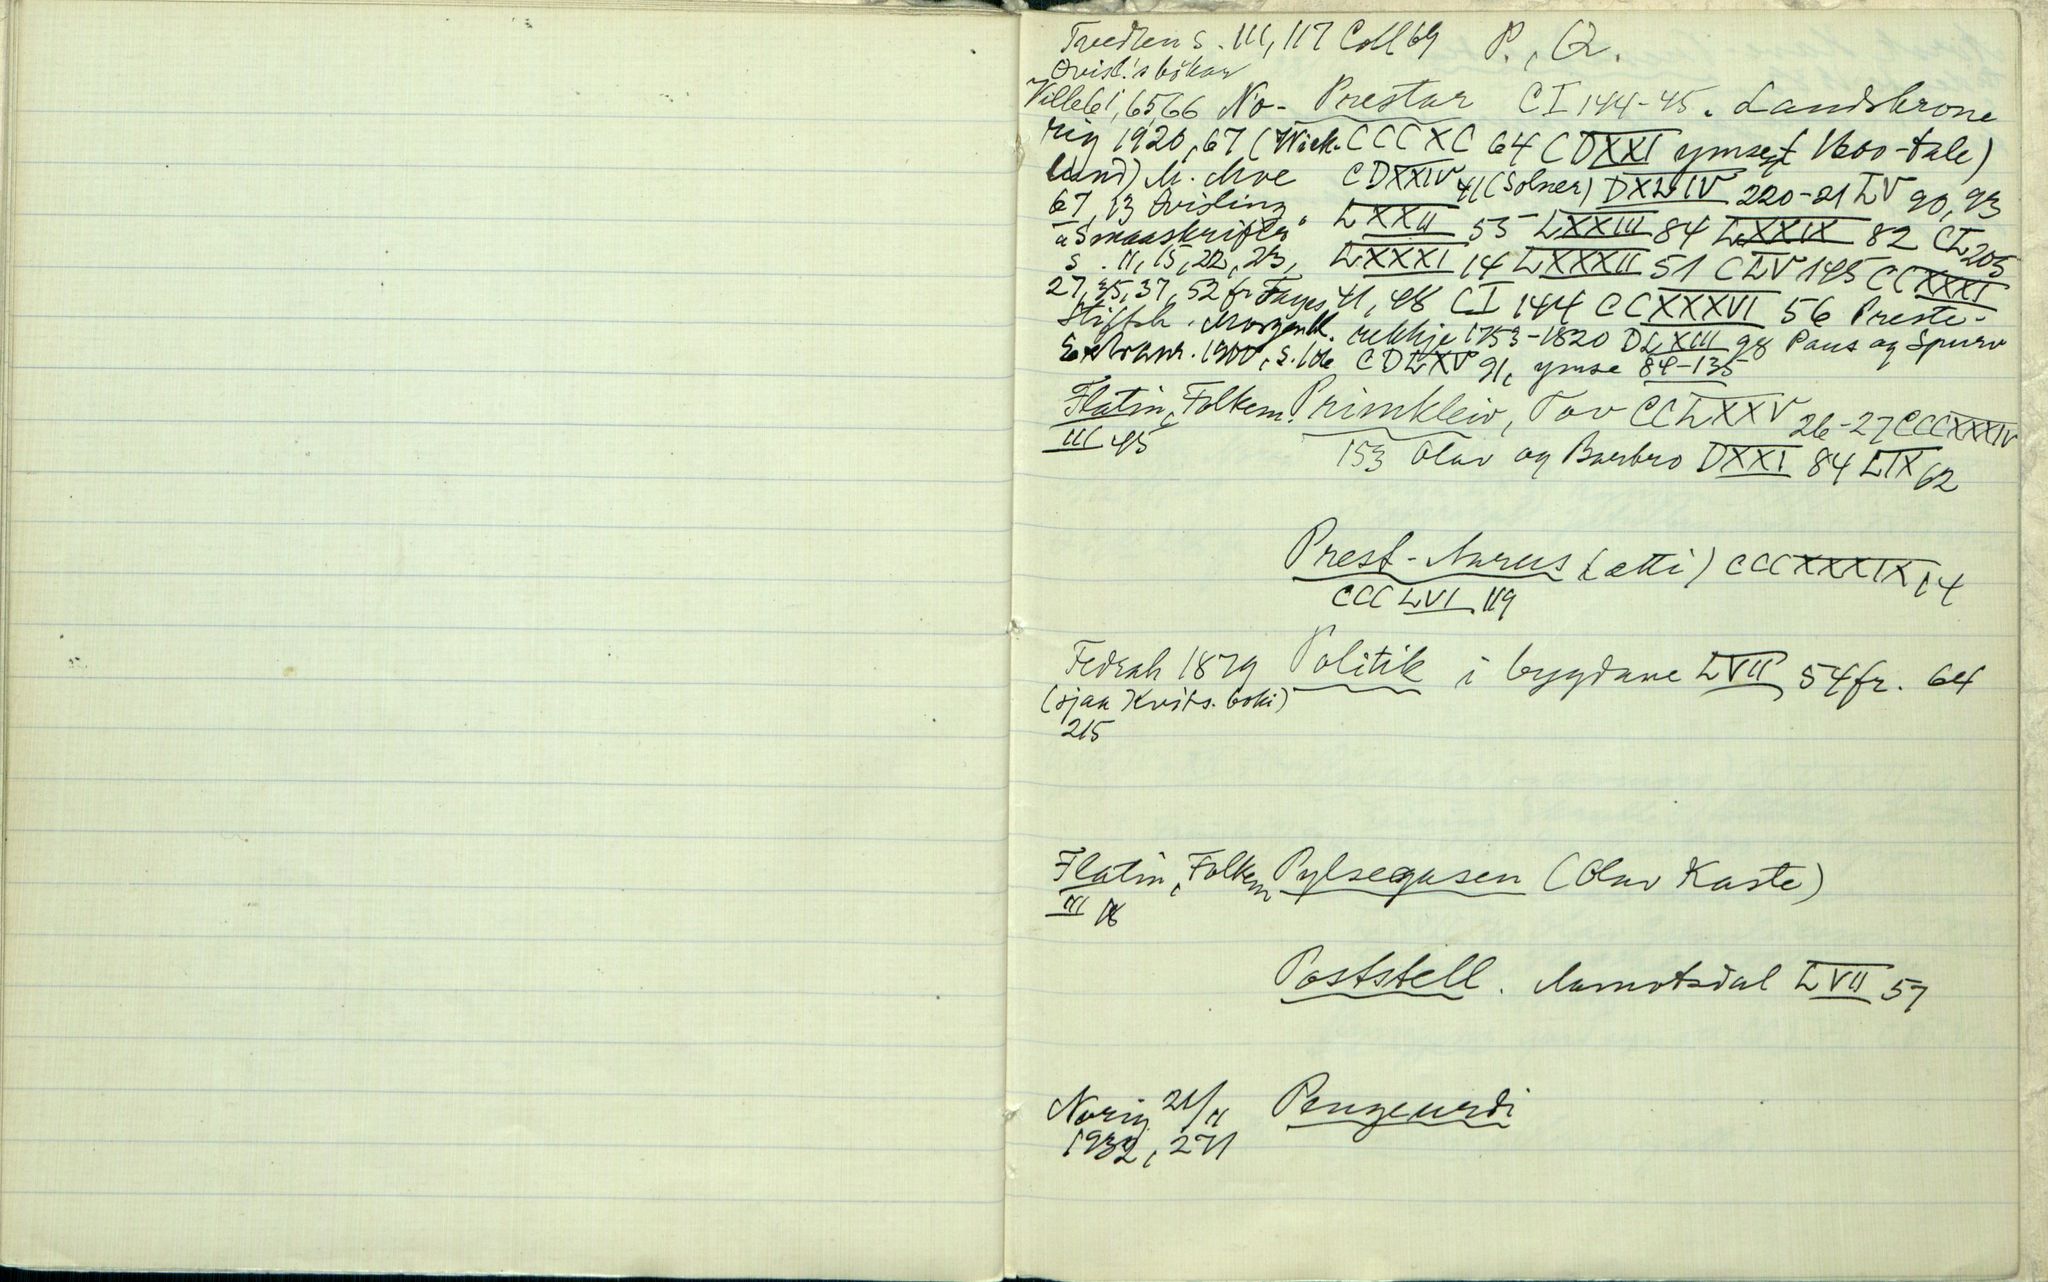 Tvedten s. 111, 117 Coll 69 P., Q.
Qvisl.'s bökar
Ville 61, 65, 66 No- Prestar CI 144-45. Landskrone
rig 1920, 67 (Wick- CCCXC 64 CDXXI ymsest 1600-tale)
lund) M. Moe CDXXIV 41 (Solner) DXLIV 220-21 LV 90, 93
67, 13 Qvisling LXXII 55 LXXIII 84 LXXIX 82 CL 205
"Smaaskrifter" LXXXI 14 LXXXII 51 CLV 145 CCXXXI
s. 11, 15, 22, 23, 41, 48 CI 144 CCXXXVI 56 Preste-
27, 35, 37, 52 fr. rekkje 1753-1820 DLXIII 98 Paus og Spurv
Stiftsk. Morgenbl. CDLXV 91, ymse 84-135
Extranr. 1900, s.
Flatin, Folkem. Primkleiv, Tov CCLXXV 26-27 CCCXXXIV
III 45 153 Olav og Barbro DXXI 84 LIX 62
Prest-Aarus (ætti) CCCXXXIX 14
CCCLVI 119
Fedrah 1879 Politik i bygdane LVII 54 fr. 64
(sjaa Kvits. boki)
215
Flatin, Folkem Pylsegasen (Olav Kaste)
III 18
Poststell. Aamotsdal LVII 57
Norig 21/11 Pengeurdi
1932, 271